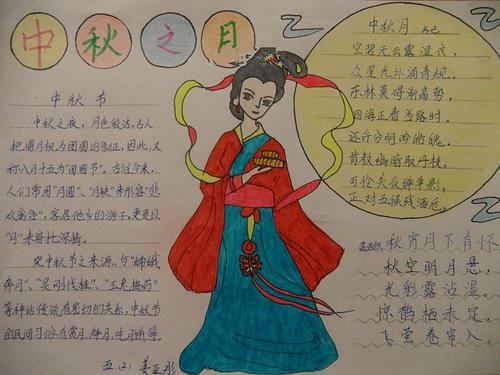 中秋之月
· 中秋节
中秋之夜，月色皎洁，古人
把圆月视为团圆的象征，因此，又
称八月十五为“团圆节”。古往今来，
人们常用“月圆”、“月缺”来形容“悲
欢离合”，客居他乡的游子，更是以
“月”来寄托深情。
究中秋节之来源，与“嫦娥
奔月”、“吴刚伐桂”、“玉兔捣药”
等神话传说有密切的关系，中秋节
的民间习俗有赏月、拜月、吃月饼等
五（2） 姜亚彤
中秋月 齐己
空碧无云露湿衣，
众星光外青规。
东林莫碍渐高势，
四海正看当路时。
还许分明吟皓魄，
肯教幽暗取丹枝。
可怜夜婵娟影，
正对五侯残酒卮。
孟浩然 秋宵月下有怀
秋空明月悬，
光彩露沾湿。
惊鹊栖未定，
飞萤卷帘入。